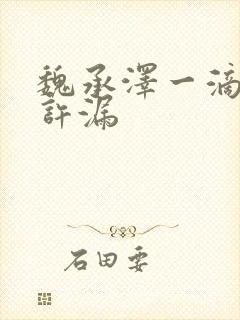 魏承澤一滴
許漏
石田要